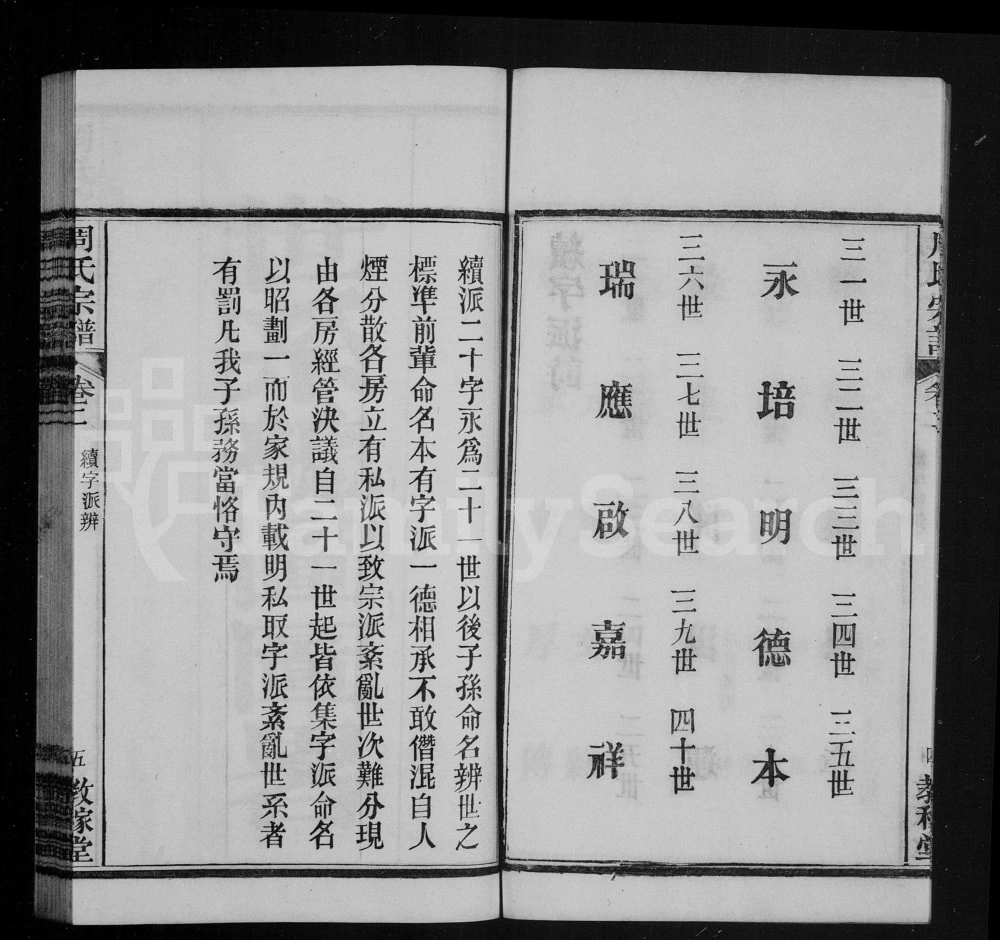 三一世 三二世 三三世 三四世 三五世
永 培 明 德 本
三六世 三七世 三八世 三九世 四十世
瑞 應 啟 嘉 祥
續派二十字永爲二十一世以後子孫命名辨世之
標準前輩命名本有字派一德相承不敢僭混自人
煙分散各房立有私派以致宗派紊亂世次難分現
由各房經管決議自二十一世起皆依集字派命名
以昭劃一而於家規內載明私取字派紊亂世系者
有罰凡我子孫務當恪守焉
周氏宗譜 卷二 續字派辨 五 教稼堂
FamilySearch